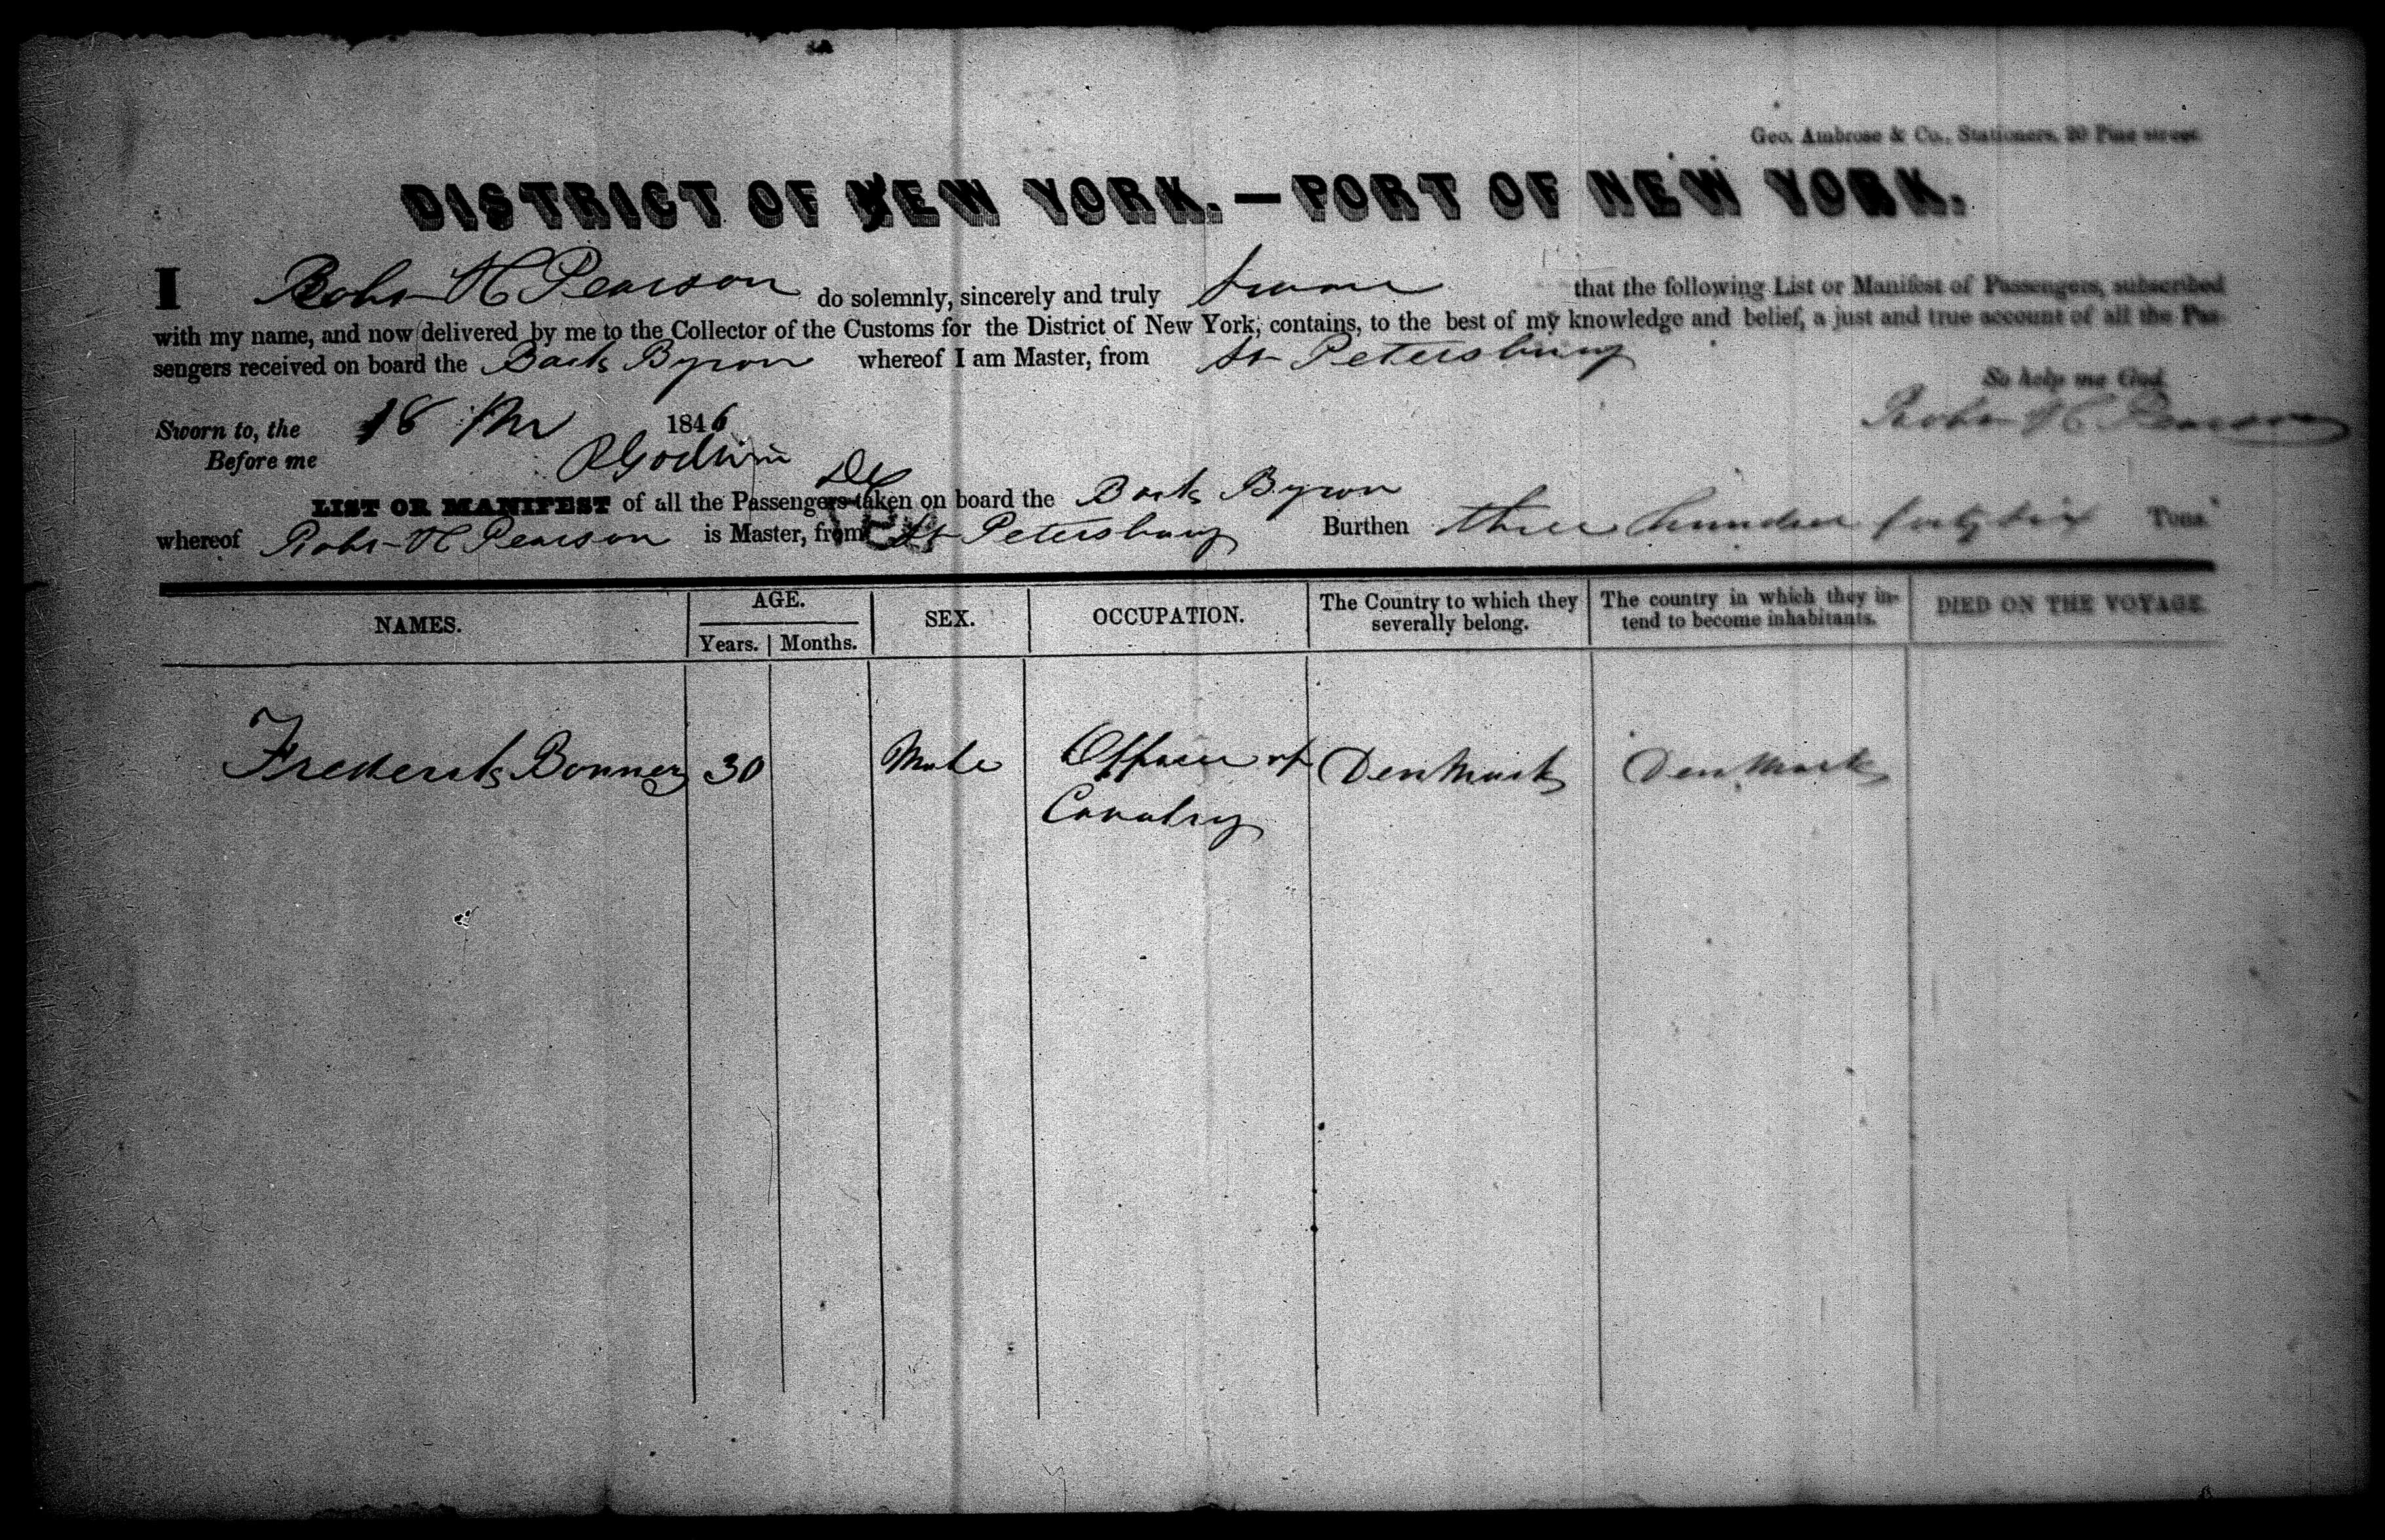 Geo. Ambrose & Co., Stationers, 20 Pine street.
DISTRICT OF NEW YORK.—PORT OF NEW YORK.
I Robt H Pearson do solemnly, sincerely and truly swear that the following List or Manifest of Passengers, subscribed
with my name, and now delivered by me to the Collector of the Customs for the District of New York, contains, to the best of my knowledge and belief, a just and true account of all the Pas-
sengers received on board the Bark Byron whereof I am Master, from St Petersburg
So help me God
Sworn to, the 18 1846 Robt H Pearson
Before me
LIST OR MANIFEST of all the Passengers taken on board the Bark Byron
whereof Robt H Pearson is Master, from St Petersburg Burthen three hundred forty six Tons
NAMES. AGE. SEX. OCCUPATION. The Country to which they severally belong. The country in which they intend to become inhabitants. DIED ON THE VOYAGE.
Years. Months.
Frederick Bonner 30 Male Officer of Denmark Denmark
Cavalry